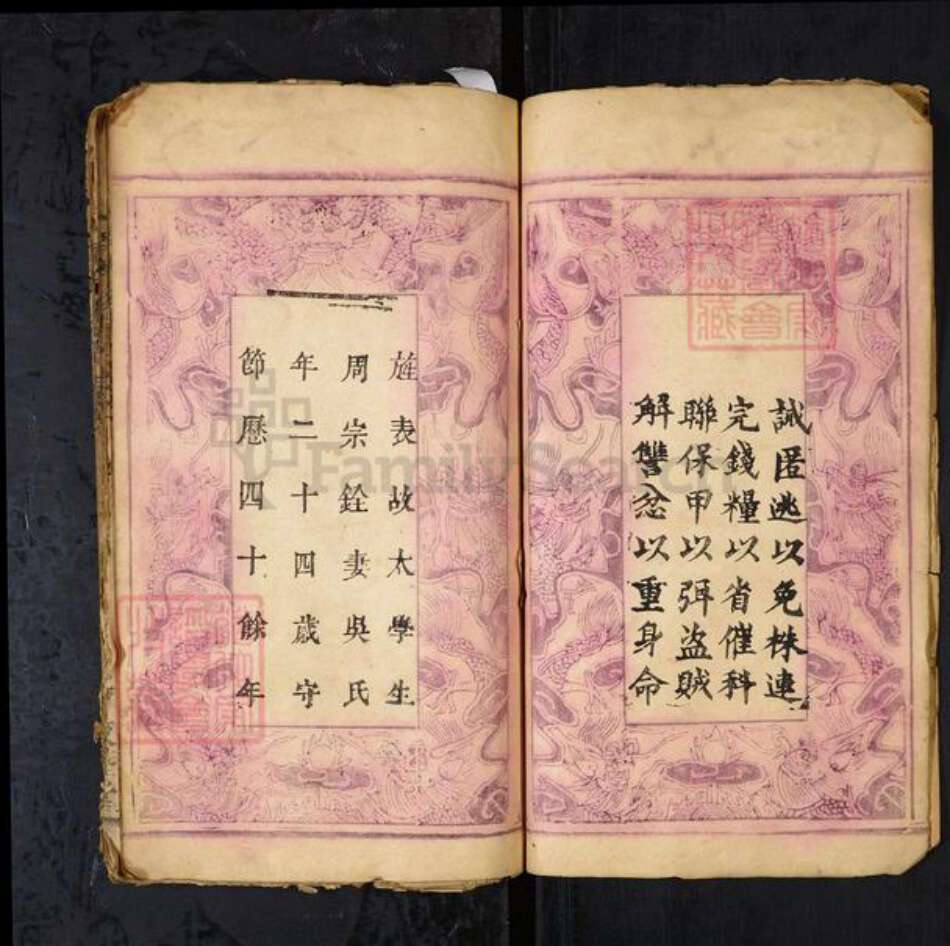 誡匿逃以免株連
完錢糧以省催科
聯保甲以弭盜賊
解讐忿以重身命
旌表故太學生
周宗銓妻吳氏
年二十四歲守
節歷四十餘年
FamilySearch